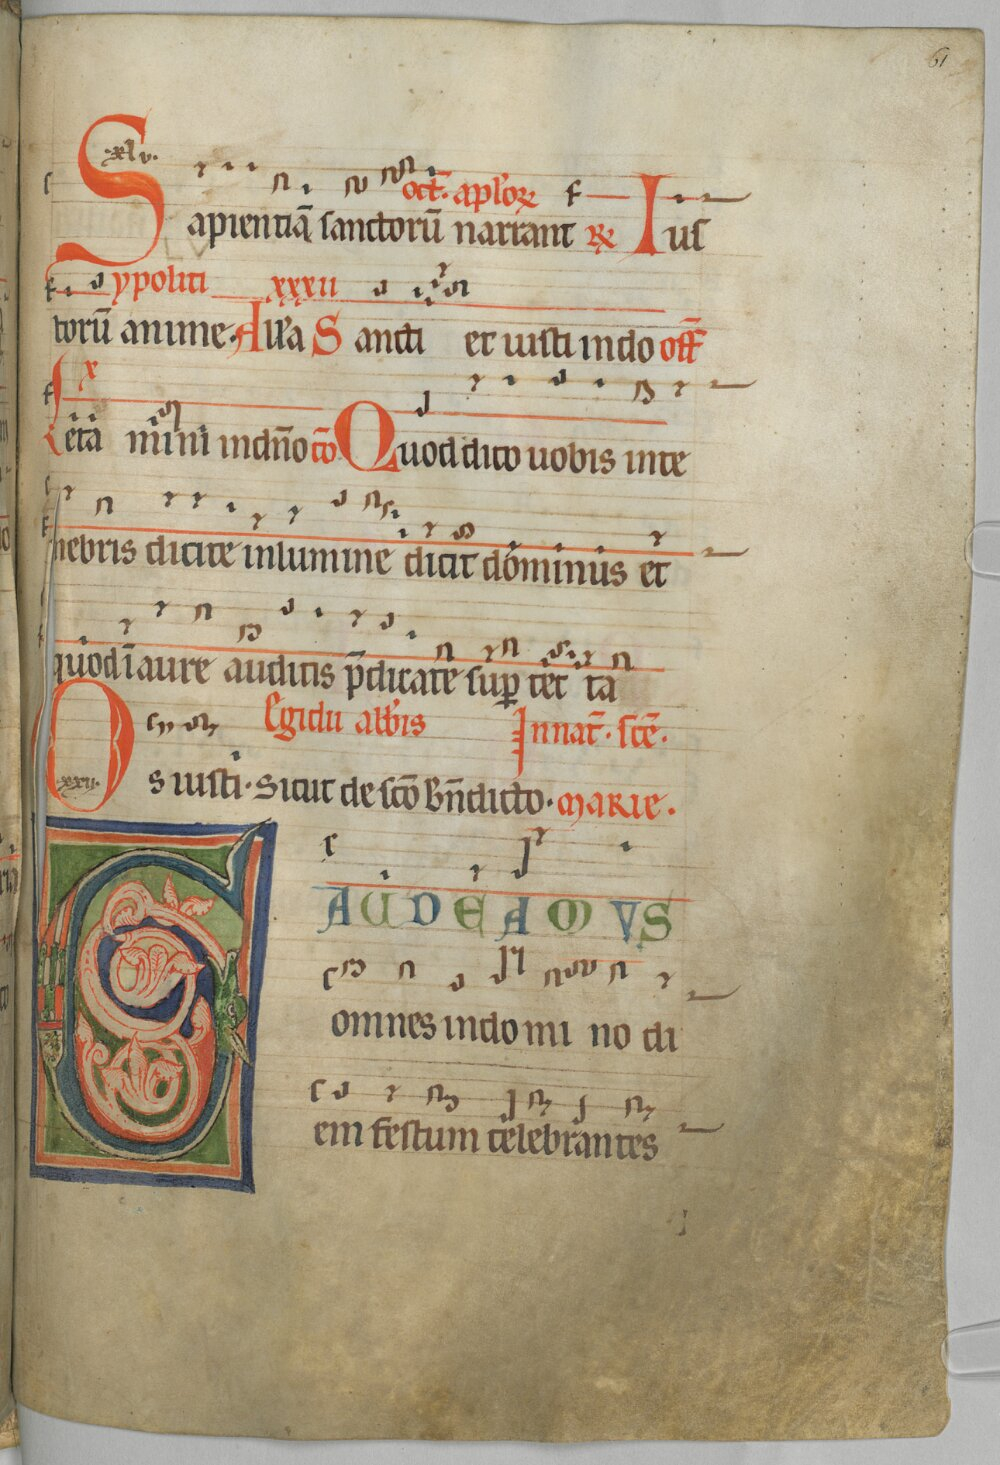 61
·xlv·
oct̄· aplōꝝ
Sapientiā sanctorū narrant ℟ Ius
ypoliti xxxii
torū anime· All'a Sancti et iusti in do off̄
x
Letā mini in dn̄o cō Quod dico uobis in te
nebris dicite in lumine dicit dominus et
quod ī aure auditis p̄dicate suꝑ tec ta
Egidii abb'is In nat̄· scē·
·xxii·
Os iusti· Sicut de scō bn̄dicto· MARIE·
GAUDEAMUS
omnes in do mi no di
em festum celebrantes